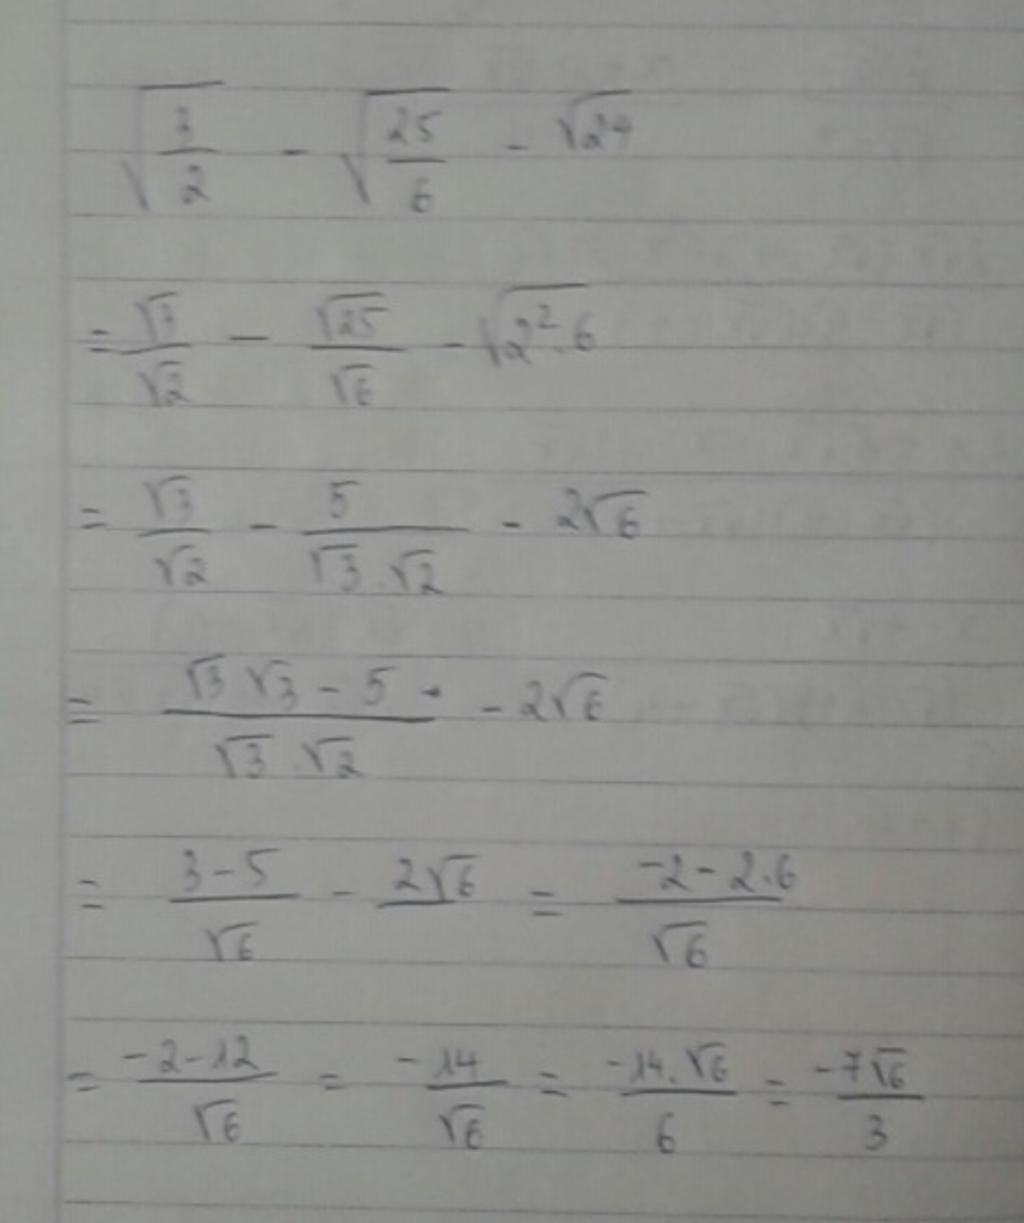 √(3/2) - √(25/6) - √24
= √3/√2 - √25/√6 - √(2².6)
= √3/√2 - 5/(√3.√2) - 2√6
= (√3 √3 - 5)/(√3.√2) - 2√6
= (3-5)/√6 - 2√6/ = (-2-2.6)/√6
= (-2-12)/√6 = -14/√6 = (-14.√6)/6 = -7√6/3